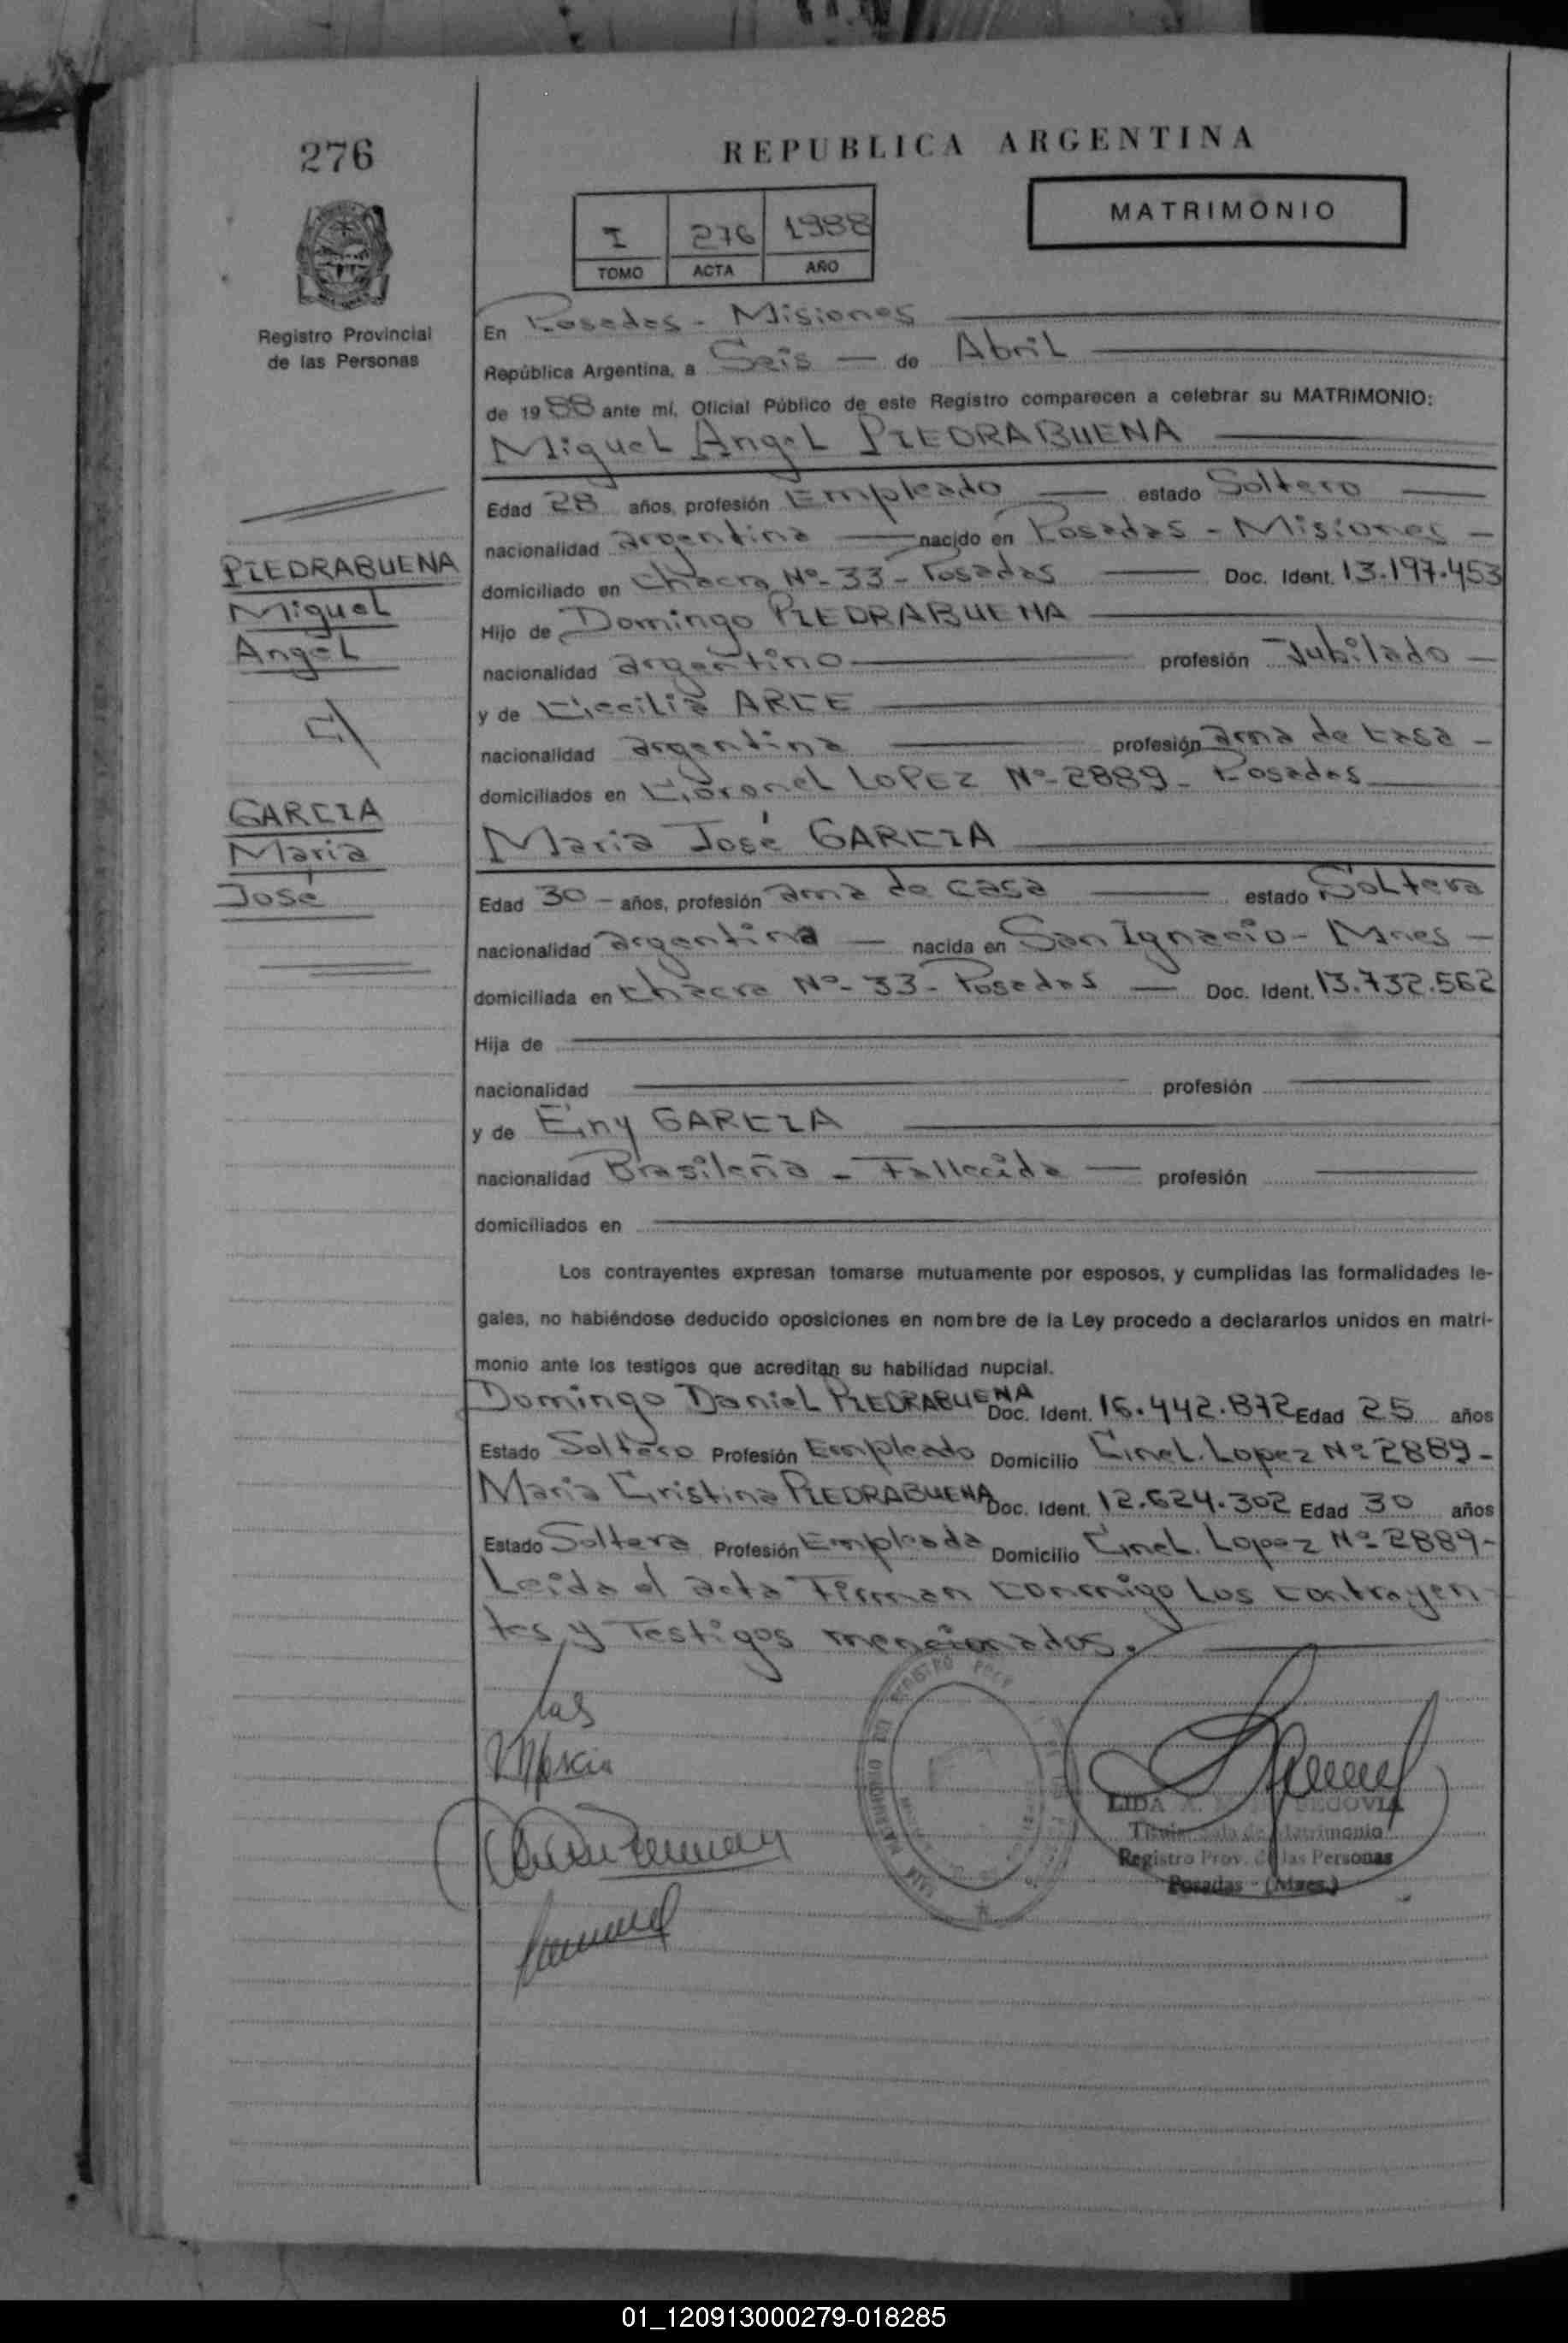 276
REPUBLICA ARGENTINA
MATRIMONIO
I 276 1988
TOMO ACTA AÑO
Registro Provincial
de las Personas
En Posadas - Misiones
República Argentina, a Seis — de Abril
de 1988 ante mí, Oficial Público de este Registro comparecen a celebrar su MATRIMONIO:
Miguel Angel PIEDRABUENA
Edad 28 años, profesión Empleado — estado Soltero
nacionalidad argentina — nacido en Posadas - Misiones -
domiciliado en Chacra Nº- 33 - Posadas — Doc. Ident. 13.197.453
Hijo de Domingo PIEDRABUENA
nacionalidad argentino — profesión Jubilado —
y de Cecilia ARCE
nacionalidad argentina — profesión ama de casa -
domiciliados en Coronel LOPEZ Nº-2889- Posadas
Maria José GARCIA
Edad 30 - años, profesión ama de casa — estado Soltera
nacionalidad argentina — nacida en San Ignacio - Mnes -
domiciliada en Chacra Nº- 33 - Posadas — Doc. Ident. 13.732.562
Hija de
nacionalidad profesión
y de Einy GARCIA
nacionalidad Brasileña - Fallecida — profesión
domiciliados en
PIEDRABUENA
Miguel
Angel
c/
GARCIA
Maria
José
Los contrayentes expresan tomarse mutuamente por esposos, y cumplidas las formalidades le-
gales, no habiéndose deducido oposiciones en nombre de la Ley procedo a declararlos unidos en matri-
monio ante los testigos que acreditan su habilidad nupcial.
Domingo Daniel PIEDRABUENA Doc. Ident. 16.442.872 Edad 25 años
Estado Soltero Profesión Empleado Domicilio Cnel. Lopez Nº 2889-
Maria Cristina PIEDRABUENA Doc. Ident. 12.624.302 Edad 30 años
Estado Soltera Profesión Empleada Domicilio Cnel. Lopez Nº 2889-
Leida el acta Firman conmigo los contrayen
tes y Testigos mencionados.
LIDA A. SEGOVIA
Titular Sala de Matrimonio
Registro Prov. de las Personas
Posadas - (Mnes.)
01_120913000279-018285